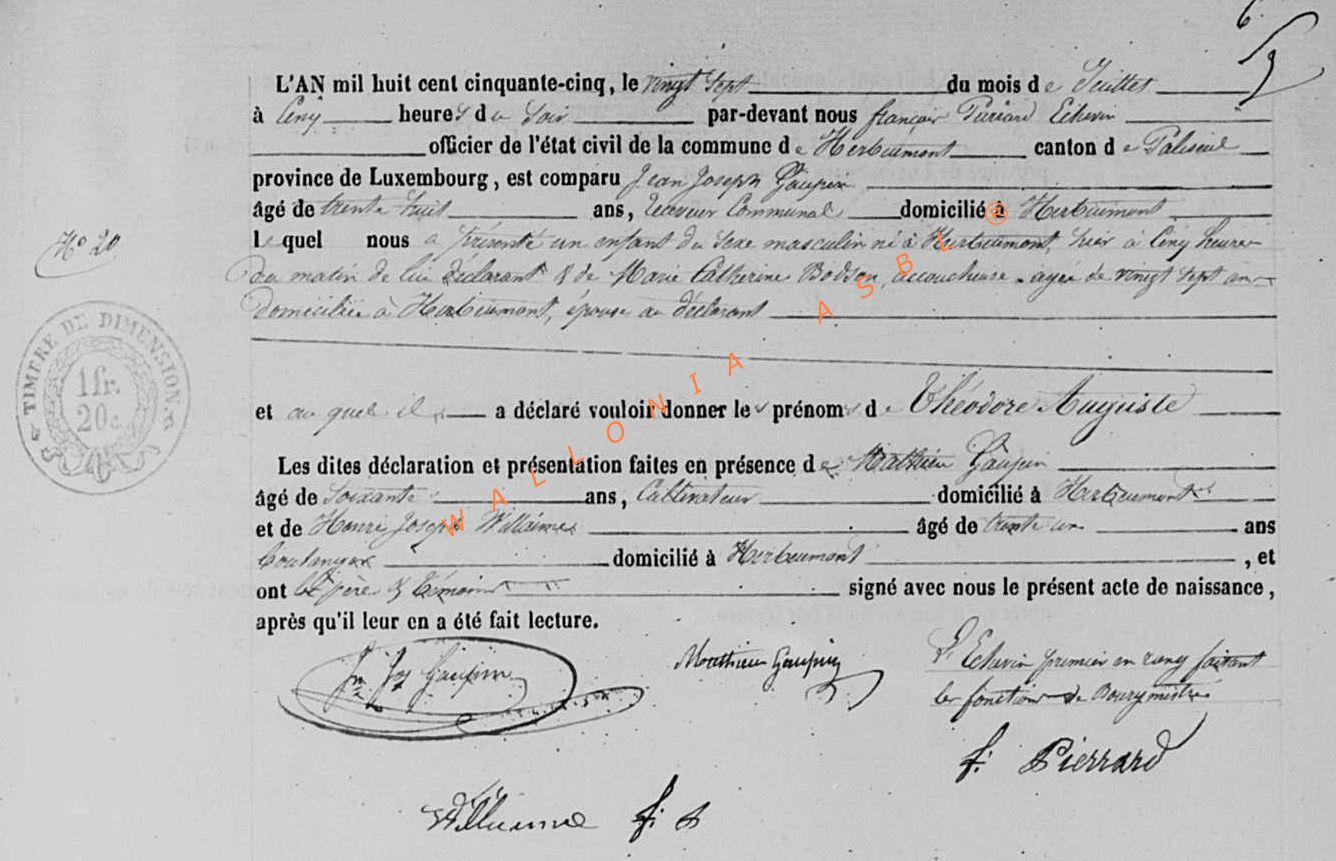 6.
L'AN mil huit cent cinquante-cinq, le vingt sept du mois de Juillet
à Cinq heures du Soir par-devant nous françois Pierard Echevin
officier de l'état civil de la commune de Herbeumont canton de Paliseul
province de Luxembourg, est comparu Jean Joseph Gaupin
âgé de trente huit ans, receveur Communal domicilié à Herbeumont
N° 20
le quel nous a présenté un enfant du sexe masculin né à Herbeumont, hier à Cinq heure
du matin de lui déclarant & de Marie Catherine Bodson, accoucheuse agée de vingt sept ans
Domiciliée à Herbeumont, épouse au déclarant
TIMBRE DE DIMENSION.
1 fr.
20 c.
et au quel il a déclaré vouloir donner les prénoms de Théodore Auguste
Les dites déclaration et présentation faites en présence de Mathieu Gaupin
âgé de Soixante ans, Cultivateur domicilié à Herbeumont
et de Henri Joseph Willaime âgé de trente un ans
Boulanger domicilié à Herbeumont, et
ont le père & témoins signé avec nous le présent acte de naissance,
après qu'il leur en a été fait lecture.
Jn Jos Gaupin
Mathieu Gaupin
L'Echevin premier en rang faisant
les fonctions de Bourgmestre
f. Pierrard
Willaime f. s
© WALLONIA ASBL